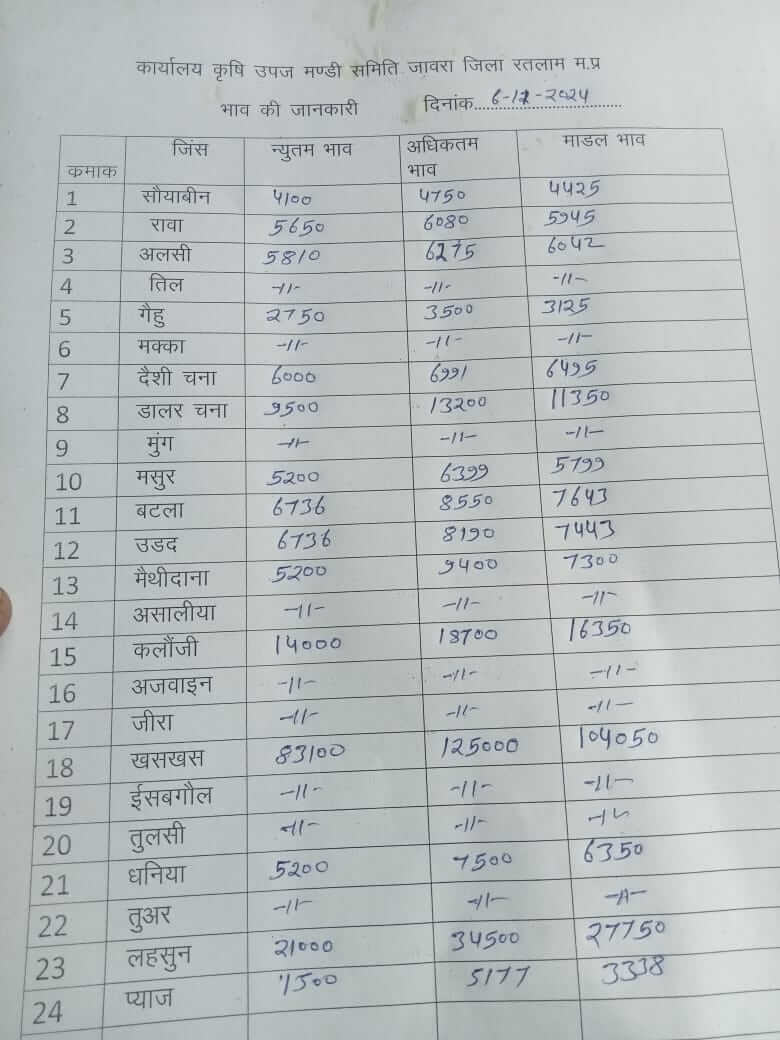 कार्यालय कृषि उपज मण्डी समिति जावरा जिला रतलाम म.प्र
भाव की जानकारी दिनांक 6-12-2024
कमाक जिंस न्युतम भाव अधिकतम भाव माडल भाव
1 सौयाबीन 4100 4750 4425
2 रावा 5650 6080 5945
3 अलसी 5810 6275 6042
4 तिल -11- -11- -11-
5 गैहु 2750 3500 3125
6 मक्का -11- -11- -11-
7 दैशी चना 6000 6991 6495
8 डालर चना 9500 13200 11350
9 मुंग -11- -11- -11-
10 मसुर 5200 6399 5799
11 बटला 6736 8550 7643
12 उडद 6736 8190 7443
13 मैथीदाना 5200 9400 7300
14 असालीया -11- -11- -11-
15 कलौंजी 14000 18700 16350
16 अजवाइन -11- -11- -11-
17 जीरा -11- -11- -11-
18 खसखस 83100 125000 104050
19 ईसबगौल -11- -11- -11-
20 तुलसी -11- -11- -11-
21 धनिया 5200 7500 6350
22 तुअर -11- -11- -11-
23 लहसुन 21000 34500 27750
24 प्याज 1500 5177 3338